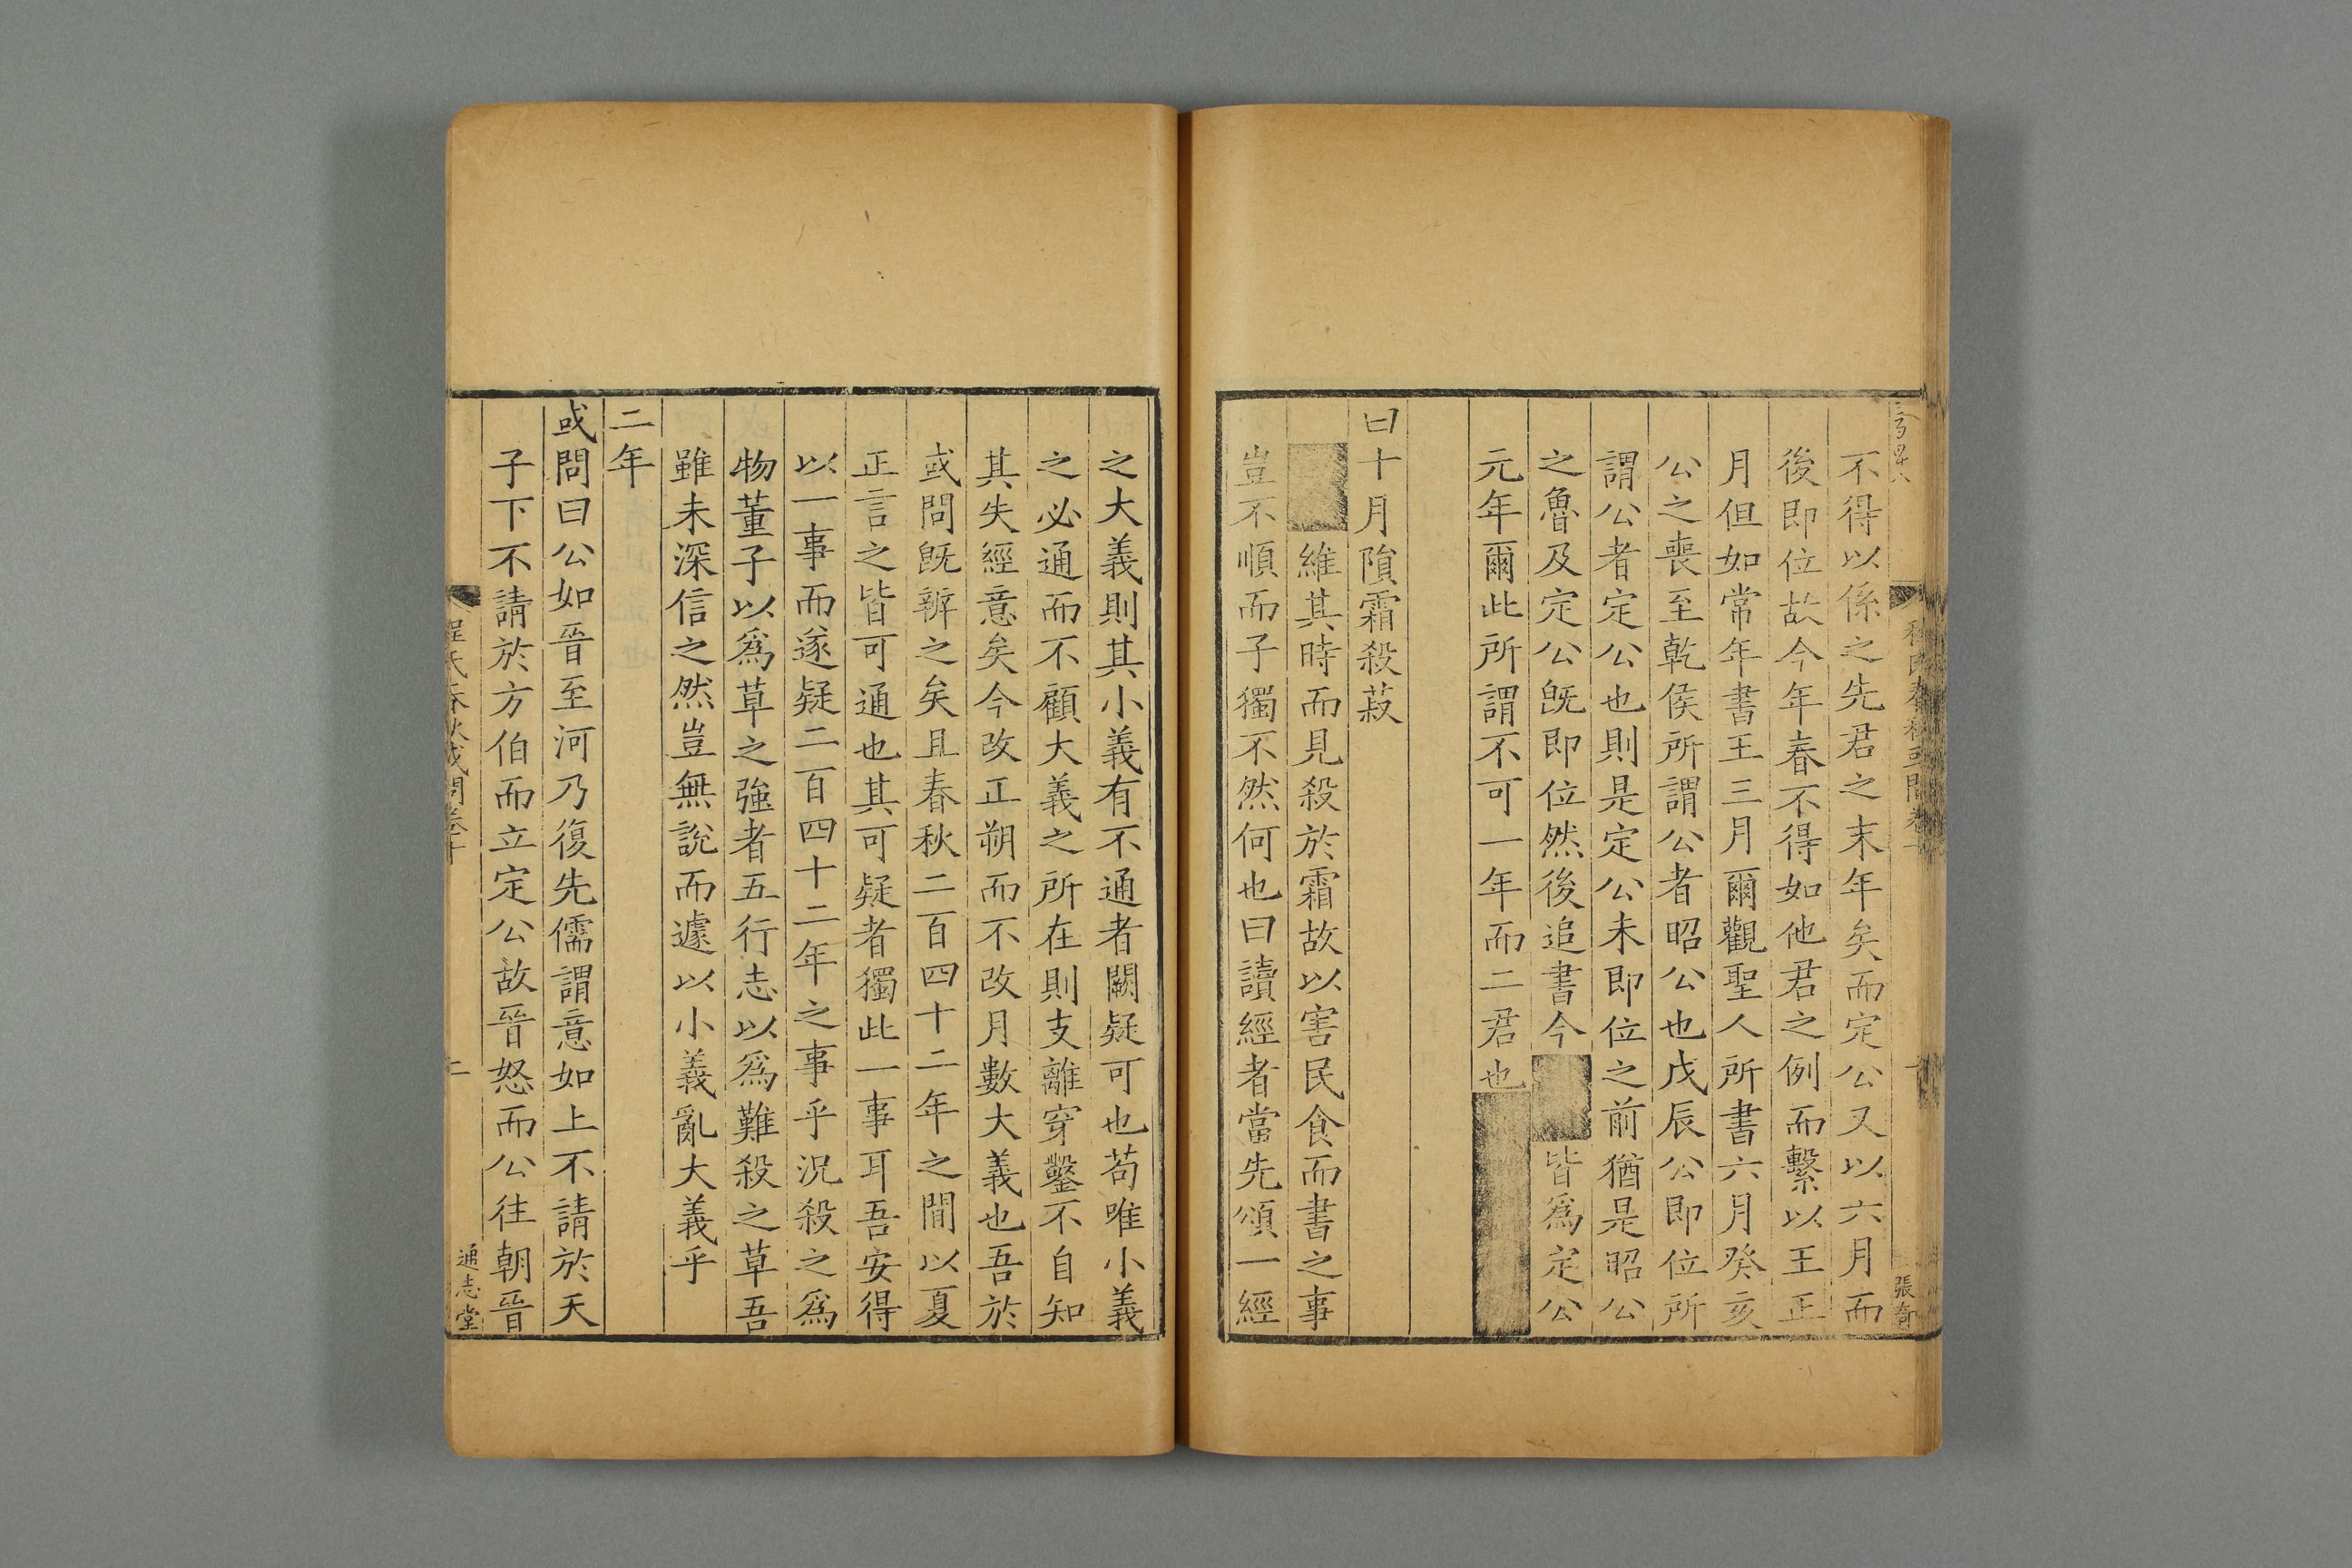 不得以係之先君之末年矣而定公又以六月而
後即位故今年春不得如他君之例而繫以王正
月但如常年書王三月爾觀聖人所書六月癸亥
公之喪至乾侯所謂公者昭公也戊辰公即位所
謂公者定公也則是定公未即位之前猶是昭公
之魯及定公旣即位然後追書今皆爲定公
元年爾此所謂不可一年而二君也
曰十月隕霜殺菽
維其時而見殺於霜故以害民食而書之事
豈不順而子獨不然何也曰讀經者當先領一經
張奇
之大義則其小義有不通者闕疑可也苟唯小義
之必通而不顧大義之所在則支離穿鑿不自知
其失經意矣今改正朔而不改月數大義也吾於
或問旣辨之矣且春秋二百四十二年之間以夏
正言之皆可通也其可疑者獨此一事耳吾安得
以一事而遂疑二百四十二年之事乎況殺之爲
物董子以爲草之強者五行志以爲難殺之草吾
雖未深信之然豈無說而遽以小義亂大義乎
二年
或問曰公如晉至河乃復先儒謂意如上不請於天
子下不請於方伯而立定公故晉怒而公往朝晉
程氏春秋或問卷十
通志堂